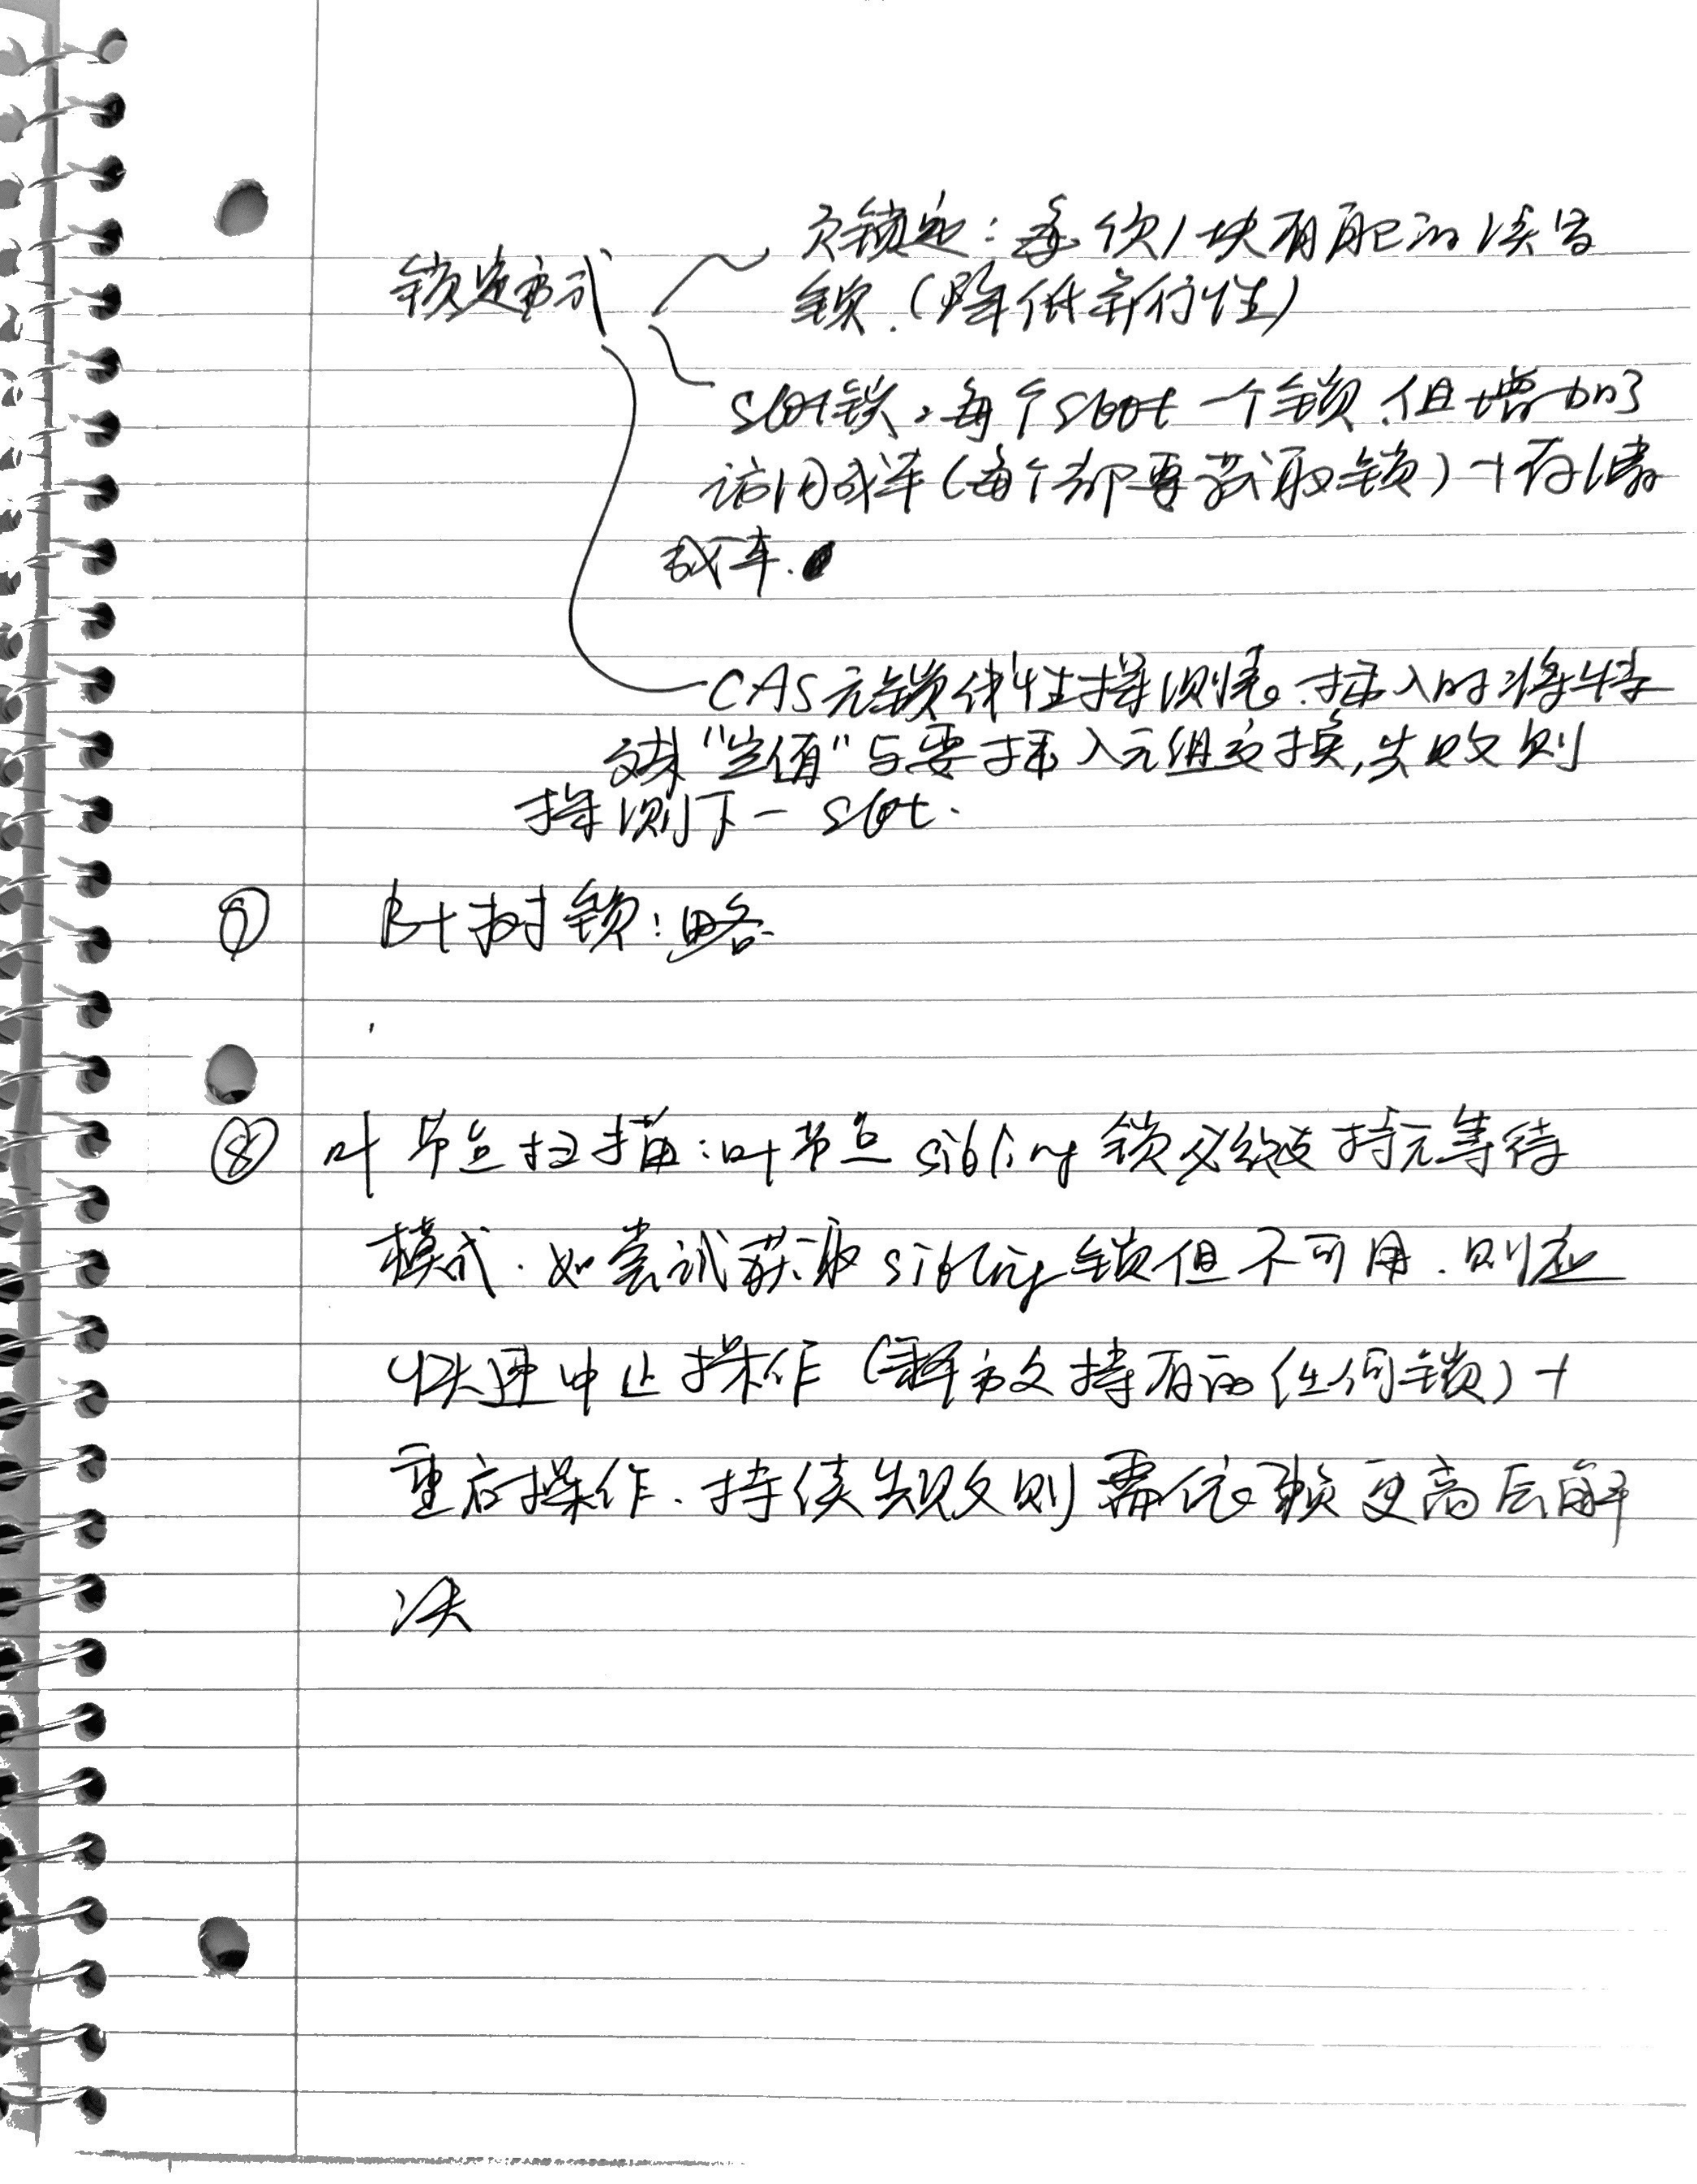 锁定方式
页锁定:每页/块有自己的读写
锁.(降低并行性)
slot锁,每个slot一个锁.但增加了
访问成本(每个都要获取锁)+存储
成本.
CAS无锁线性探测表.插入时将特
殊"空值"与要插入元组交换,失败则
探测下一slot.
⑦ B+树锁:略
⑧ 叶节点扫描:叶节点sibling锁必须支持无等待
模式.如尝试获取sibling锁但不可用.则应
快速中止操作(释放持有的任何锁)+
重启操作.持续失败则需依赖更高层解
决